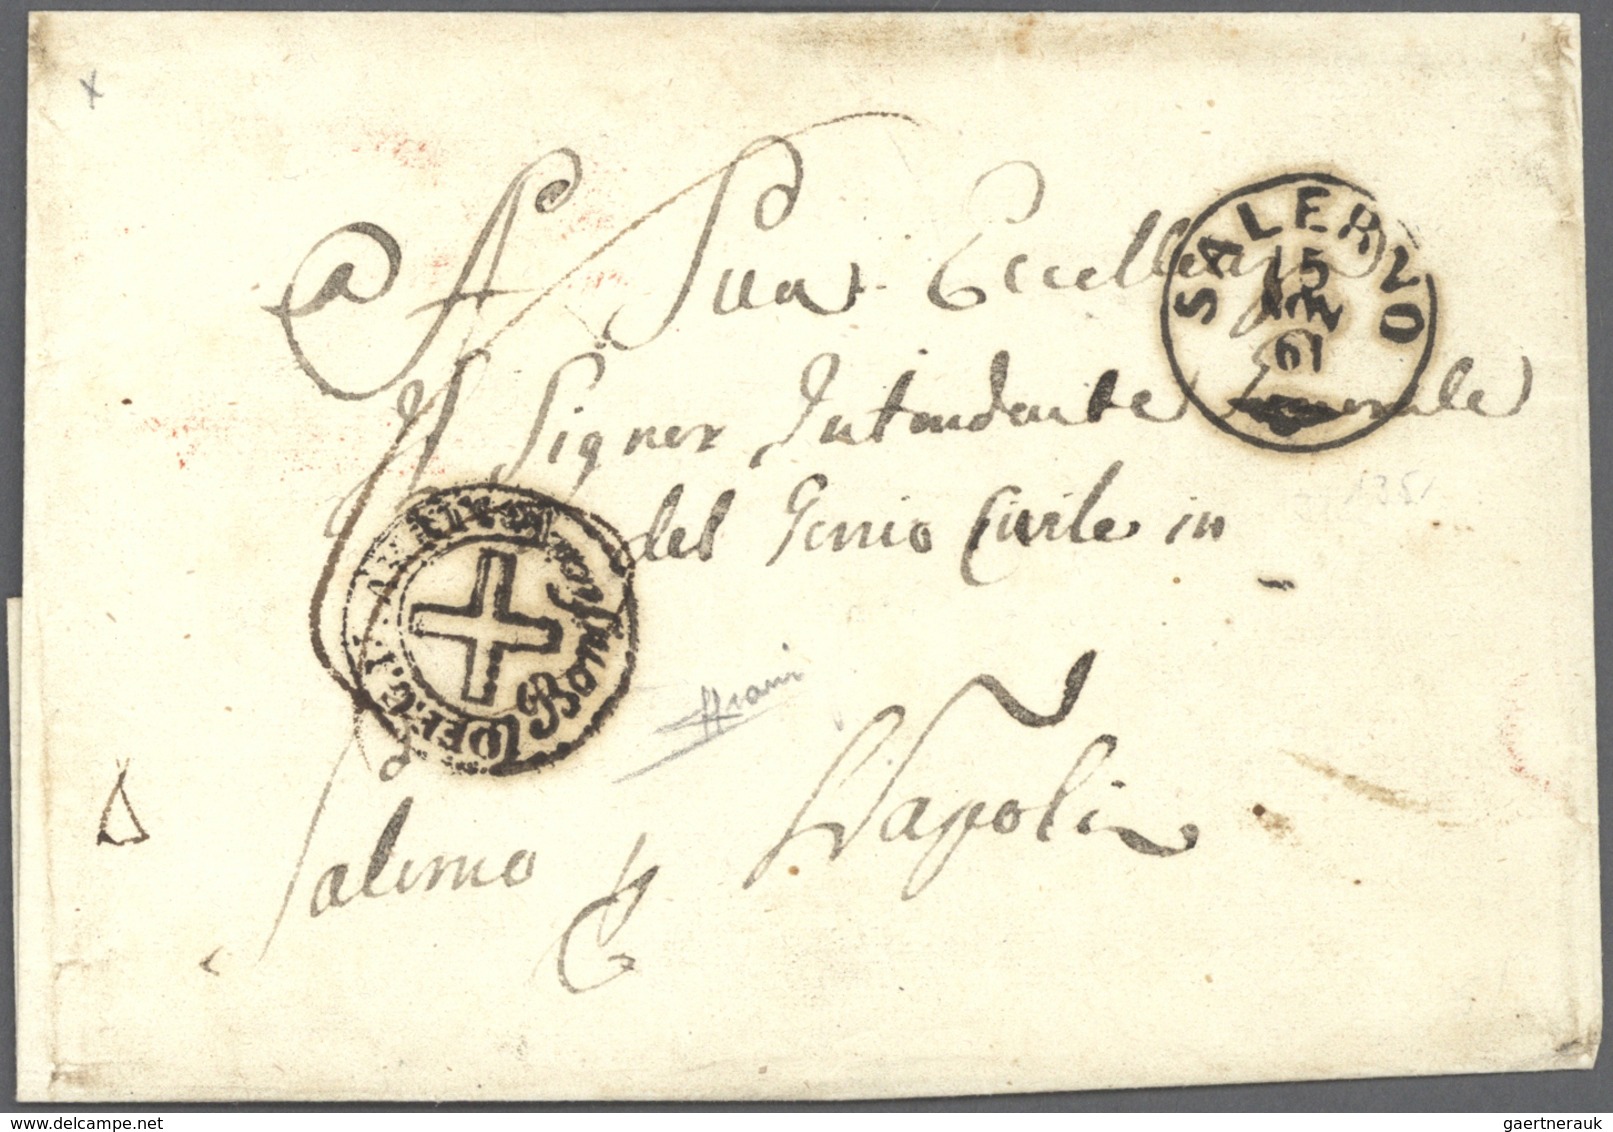 A Sua Eccellenza
Il Signor Intendente Generale
del Genio Civile in
Napoli
Salerno
SALERNO
15
61
Bonifica
ffrani
delcampe.net
gaertnerauk